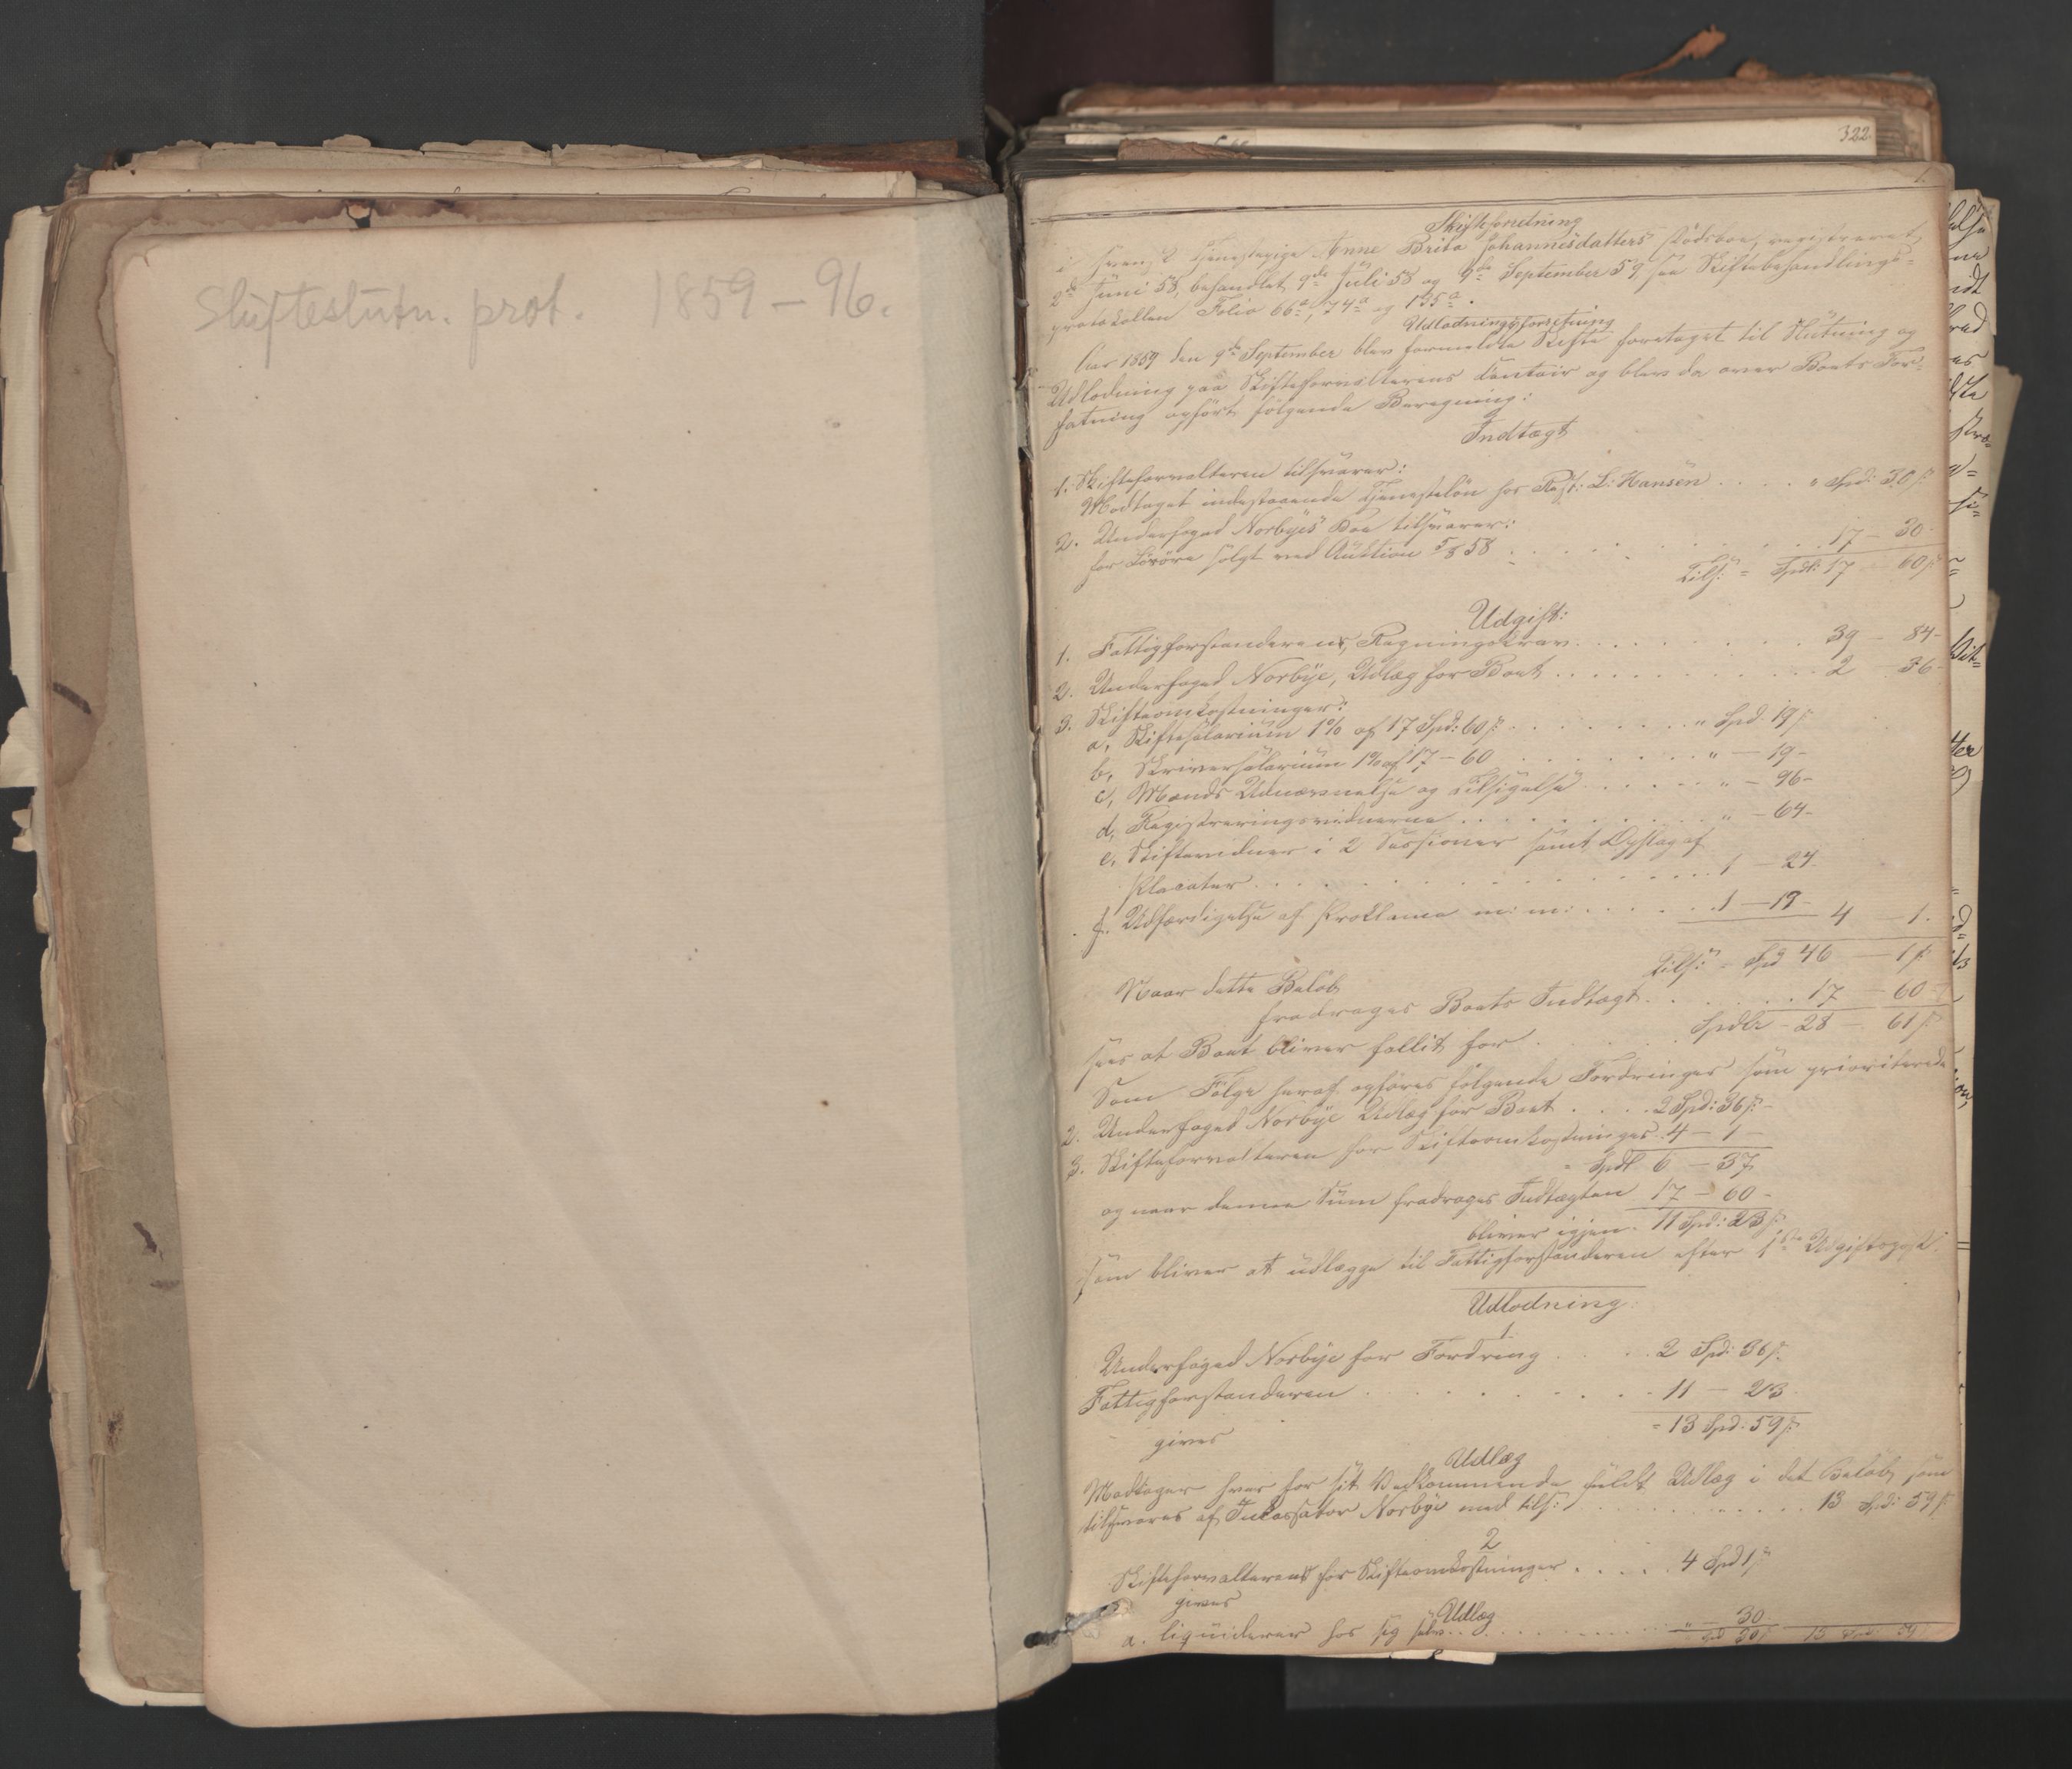 Skifteslutn. prot. 1859 – 96.
322.
1.
Skifteforretning
i Tjenestepige Anne Brita Johannesdatters Dødsboe, registreret
2de Juni 58, behandlet 9de Juli 58 og 9de September 59 see Skiftebehandlings-
protokollen Folio 66a, 74a og 195a.
Udlodningsforretning
Aar 1859 den 9de September blev formeldte Skifte foretaget til Slutning og
Udlodning paa Skifteforvalterens Contoir og blev da over Boets For-
fatning opført følgende Beregning:
Indtægt
1. Skifteforvalteren tilsvarer:
Modtaget indestaaende Tjenesteløn hos L: Hansen . . . . " Spd: 30 ß
2. Underfoged Norbyes Boe tilsvarer:
for Løsøre solgt ved Auktion 5/8 58 . . . 17 – 30
Tils: = Spd: 17 – 60 ß
Udgift:
1. Fattigforstanderens Regningskrav . . . 39 – 84 –
2. Underfoged Norbye, Udlæg for Boet . . . 2 36 –
3. Skifteomkostninger:
a, Skiftesalarium 1% af 17 Spd: 60 ß . . . " Spd. 19 ß
b, Skriversalarium 1% af 17 – 60 . . . " – 19 –
c, Mænds Udnævnelse og Tilsigelse . . . " – 96 –
d, Registreringsvidnerne . . . " – 64 –
e, Skiftevidner i 2 Sessioner samt Opslag af
Placater . . . 1 – 24 –
f. Udfærdigelse af Proklama m: m: . . . 1 – 19 – 4 – 1.
Tils: = Spd 46 – 1 ß
Naar dette Beløb
fradrages Boets Indtægt . . . 17 – 60 –
sees at Boet bliver fallit for . . . Spdlr – 28 – 61 ß
Som Følge heraf opføres følgende Fordringer som prioriterede
2. Underfoged Norbye Udlæg for Boet . . . 2 Spd: 36 ß –
3. Skifteforvalteren for Skifteomkostninger . 4 – 1 –
= Spdl 6 – 37
og naar denne Sum fradrages Indtægten 17 – 60 –
bliver igjen 11 Spd: 23 ß
som bliver at udlægge til Fattigforstanderen efter 1ste Udgiftspost.
Udlodning
1
Underfoged Norbye for Fordring . . . 2 Spd: 36 ß
Fattigforstanderen . . . 11 – 23
= 13 Spd: 59 ß
gives
Udlæg
Modtager hver for sit Vedkommende fuldt Udlæg i det Beløb som
tilsvares af Inkassator Norbye med tils: . . . 13 Spd: 59 ß
2
Skifteforvalterens for Skifteomkostninger . . . 4 Spd 1 ß
gives
Udlæg
a. liquiderer hos sig selv . . . " – 30